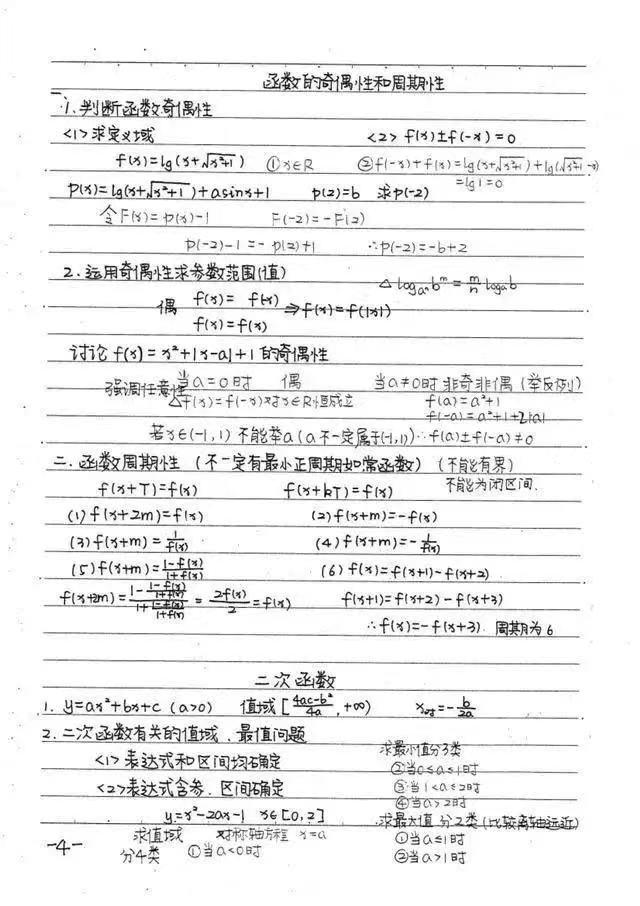 函数的奇偶性和周期性
1.判断函数奇偶性
<1>求定义域 <2> f(x)±f(-x)=0
f(x)=lg(x+√x²+1) ①x∈R ②f(-x)+f(x)=lg(x+√x²+1)+lg(√x²+1-x)
=lg1=0
p(x)=lg(x+√x²+1)+asinx+1 p(2)=b 求p(-2)
令F(x)=p(x)-1 F(-2)=-F(2)
p(-2)-1=-p(2)+1 ∴p(-2)=-b+2
2.运用奇偶性求参数范围(值) △ logₐₙbᵐ=m/n logₐb
偶 f(x)=f(-x) ⇒f(x)=f(|x|)
f(x)=f(x)
讨论f(x)=x²+|x-a|+1的奇偶性
强调任意性 当a=0时 偶 当a≠0时 非奇非偶(举反例)
△f(x)=f(-x)对x∈R恒成立 f(a)=a²+1
f(-a)=a²+1+2|a|
若x∈(-1,1) 不能举a(a不一定属于(-1,1)) ∴f(a)±f(-a)≠0
二.函数周期性(不一定有最小正周期如常函数)(不能有界)
f(x+T)=f(x) f(x+kT)=f(x) 不能为闭区间.
(1)f(x+2m)=f(x) (2)f(x+m)=-f(x)
(3)f(x+m)=1/f(x) (4)f(x+m)=-1/f(x)
(5)f(x+m)=1-f(x)/1+f(x) (6)f(x)=f(x+1)-f(x+2)
f(x+2m)=(1-(1-f(x))/(1+f(x)))/(1+(1-f(x))/(1+f(x)))=2f(x)/2=f(x) f(x+1)=f(x+2)-f(x+3)
∴f(x)=-f(x+3) 周期为6
二次函数
1.y=ax²+bx+c (a>0) 值域[4ac-b²/4a,+∞) x对=-b/2a
2.二次函数有关的值域、最值问题
<1>表达式和区间均确定
<2>表达式含参.区间确定
y=x²-2ax-1 x∈[0,2]
求值域 对称轴方程 x=a
分4类 ①当a<0时
求最小值分3类
②当0≤a≤1时
③当1<a≤2时
④当a>2时
求最大值 分2类(比较离轴远近)
①当a≤1时
②当a>1时
-4-